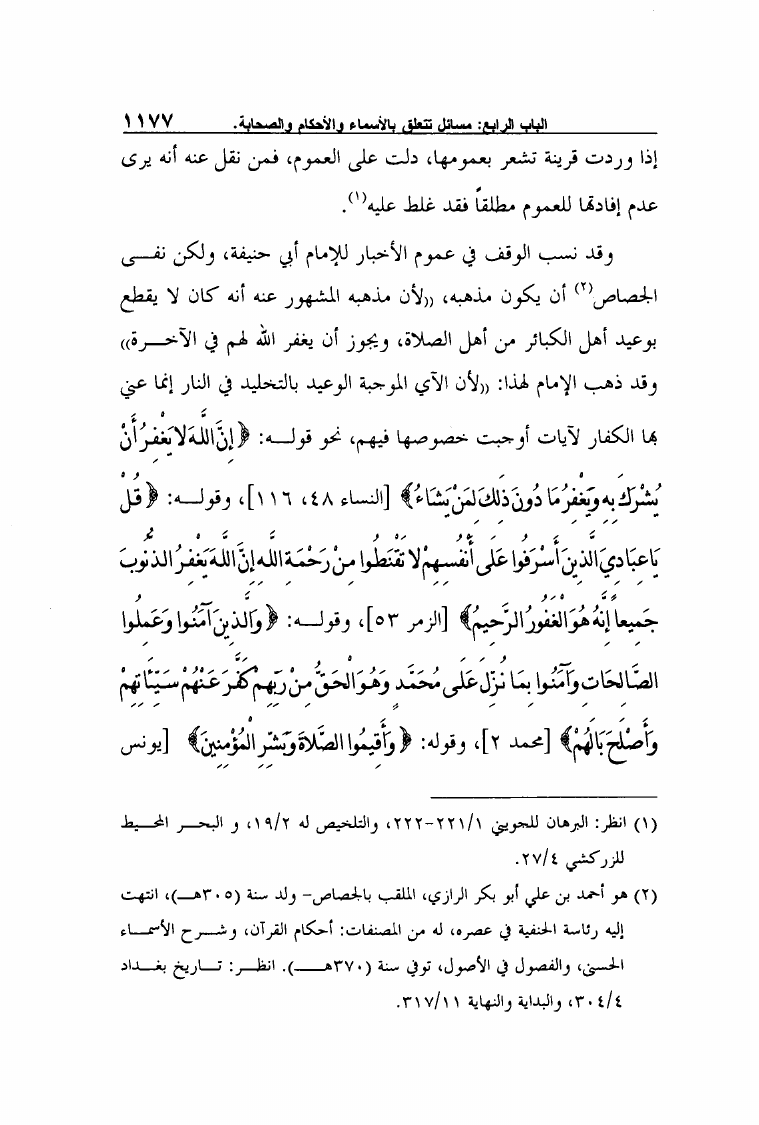 الباب الرابع: مسائل تتعلق بالأسماء والأحكام والصحابة. ١١٧٧
إذا وردت قرينة تشعر بعمومها، دلت على العموم، فمن نقل عنه أنه يرى
عدم إفادتها للعموم مطلقاً فقد غلط عليه(١).
وقد نسب الوقف في عموم الأخبار للإمام أبي حنيفة، ولكن نفـــى
الجصاص(٢) أن يكون مذهبه، ((لأن مذهبه المشهور عنه أنه كان لا يقطع
بوعيد أهل الكبائر من أهل الصلاة، ويجوز أن يغفر الله لهم في الآخـــرة))
وقد ذهب الإمام لهذا: ((لأن الآي الموجبة الوعيد بالتخليد في النار إنما عني
بها الكفار لآيات أوجبت خصوصها فيهم، نحو قولـــه: ﴿إِنَّ اللَّهَ لَا يَغْفِرُ أَنْ
يُشْرَكَ بِهِ وَيَغْفِرُ مَا دُونَ ذَلِكَ لِمَنْ يَشَاءُ﴾ [النساء ٤٨، ١١٦]، وقولـــه: ﴿قُلْ
يَا عِبَادِيَ الَّذِينَ أَسْرَفُوا عَلَى أَنْفُسِهِمْ لَا تَقْنَطُوا مِنْ رَحْمَةِ اللَّهِ إِنَّ اللَّهَ يَغْفِرُ الذُّنُوبَ
جَمِيعاً إِنَّهُ هُوَ الْغَفُورُ الرَّحِيمُ﴾ [الزمر ٥٣]، وقولـــه: ﴿وَالَّذِينَ آمَنُوا وَعَمِلُوا
الصَّالِحَاتِ وَآمَنُوا بِمَا نُزِّلَ عَلَى مُحَمَّدٍ وَهُوَ الْحَقُّ مِنْ رَبِّهِمْ كَفَّرَ عَنْهُمْ سَيِّئَاتِهِمْ
وَأَصْلَحَ بَالَهُمْ﴾ [محمد ٢]، وقوله: ﴿وَأَقِيمُوا الصَّلَاةَ وَبَشِّرِ الْمُؤْمِنِينَ﴾ [يونس
(١) انظر: البرهان للجويني ٢٢١/١-٢٢٢، والتلخيص له ١٩/٢، و البحـــر المحـــيط
للزركشي ٢٧/٤.
(٢) هو أحمد بن علي أبو بكر الرازي، الملقب بالجصاص- ولد سنة (٣٠٥هـــ)، انتهت
إليه رئاسة الحنفية في عصره، له من المصنفات: أحكام القرآن، وشـــرح الأسمـــاء
الحسنى، والفصول في الأصول، توفي سنة (٣٧٠هـــ). انظـــر: تـــاريخ بغـــداد
٣٠٤/٤، والبداية والنهاية ٣١٧/١١.